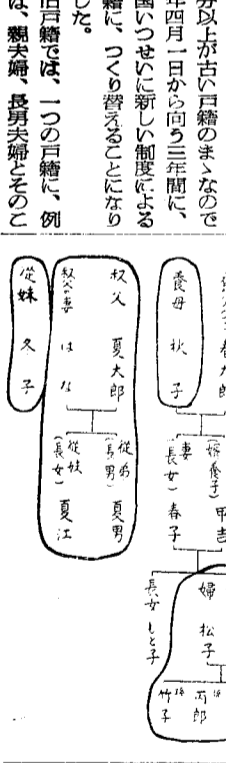 分以上が古い戸籍のまゝなので
年四月一日から向う三年間に、
国いつせいに新しい制度による
籍に、つくり替えることになり
した。
旧戸籍では、一つの戸籍に、例
は、親夫婦、長男夫婦とそのこ
春九郎
養母 秋子
(婿養子) 甲吉
妻(長女) 春子
婦 松子
孫 丙郎
孫 竹子
長女 もと子
叔父 夏太郎
叔父の妻 はな
従弟(長男) 夏男
従妹(長女) 夏江
従妹 冬子